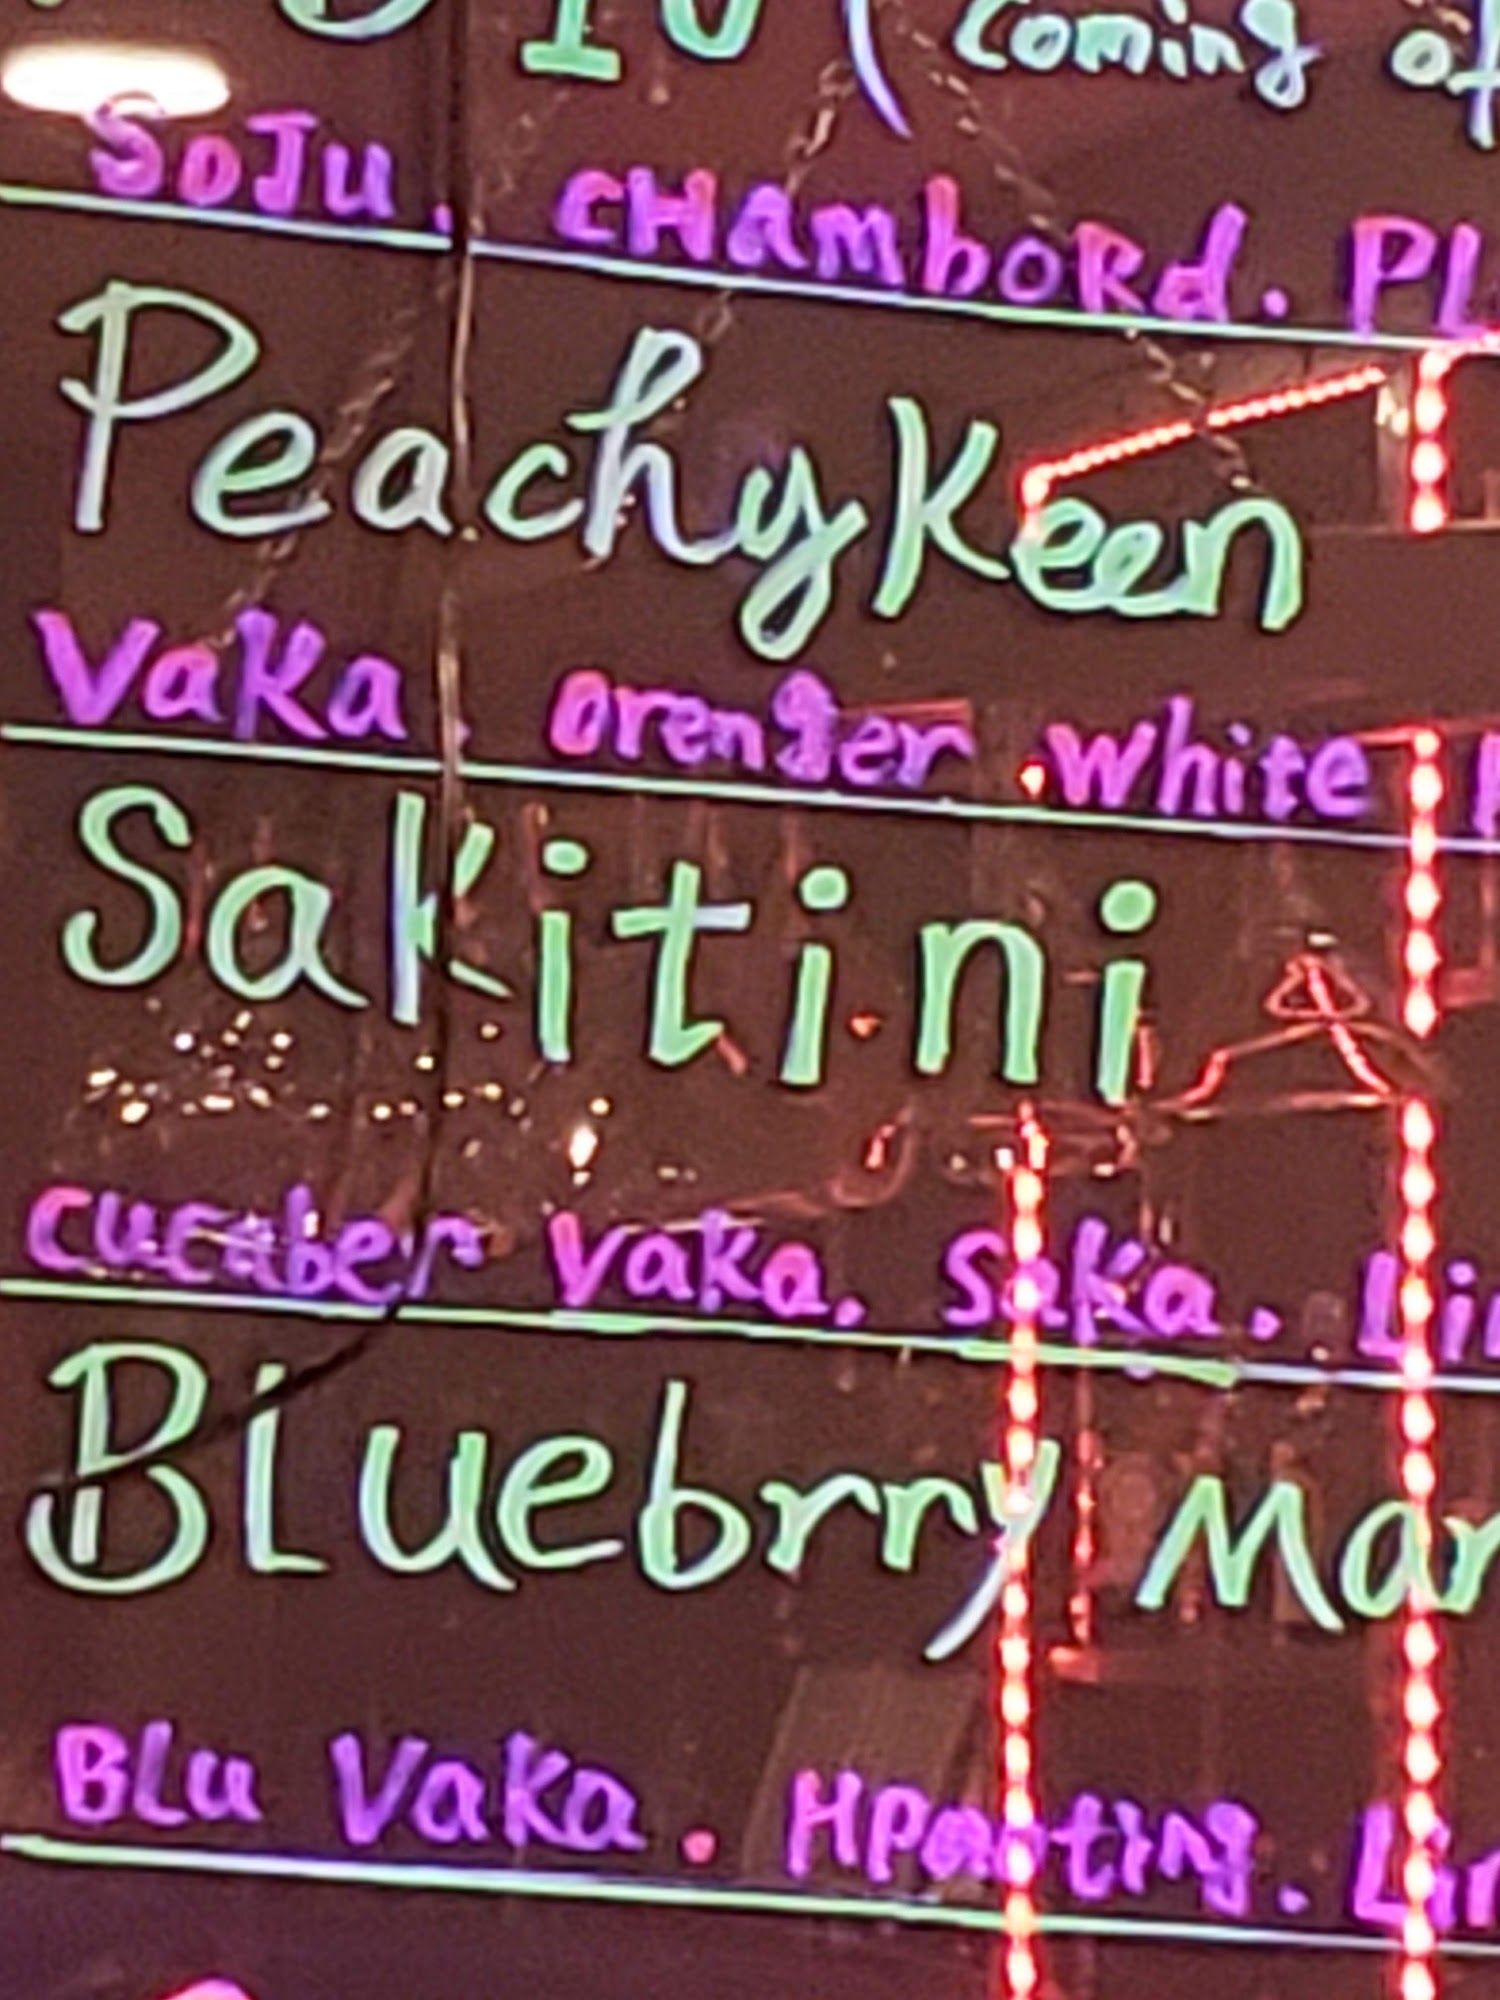 (Coming of
SoJu. CHambORd. PL
Peachy Keen
VaKa. Orenger. white
Sakitini
cucaber vaka. Saka. Li
BLuebrry Mar
BLu VaKa. Hpnoting. Lin